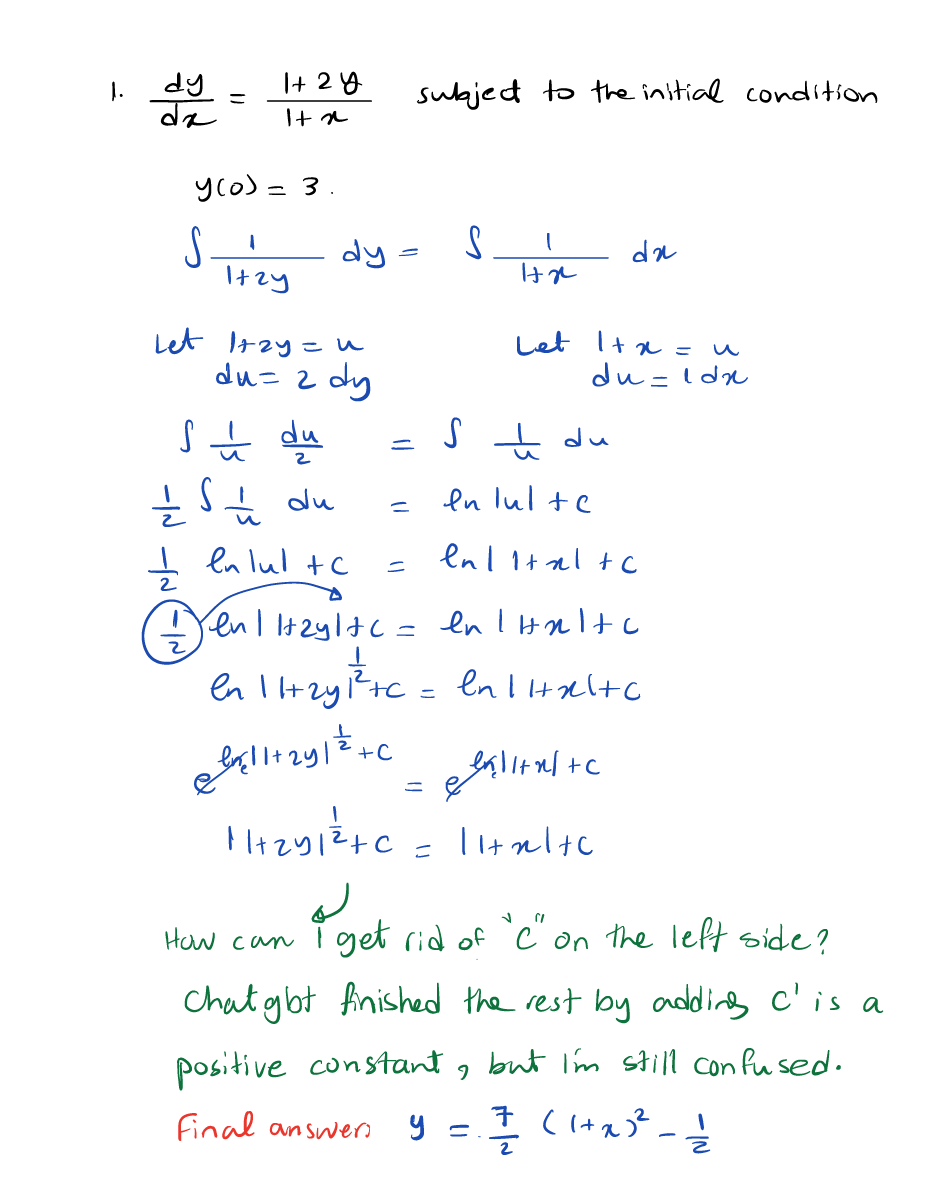 1. dy/dx = 1+2y/1+x subject to the initial condition
y(0) = 3.
∫ 1/1+2y dy = ∫ 1/1+x dx
Let 1+2y = u Let 1+x = u
du = 2 dy du = 1 dx
∫ 1/u du/2 = ∫ 1/u du
1/2 ∫ 1/u du = ln |u| + c
1/2 ln |u| + c = ln | 1+x | + c
1/2 ln | 1+2y | + c = ln | 1+x | + c
ln | 1+2y |^1/2 + c = ln | 1+x | + c
e^ln | 1+2y |^1/2 + c = e^ln | 1+x | + c
| 1+2y |^1/2 + c = | 1+x | + c
How can i get rid of "c" on the left side?
Chatgbt finished the rest by adding c' is a
positive constant, but I'm still confused.
Final answer: y = 7/2 (1+x)² - 1/2